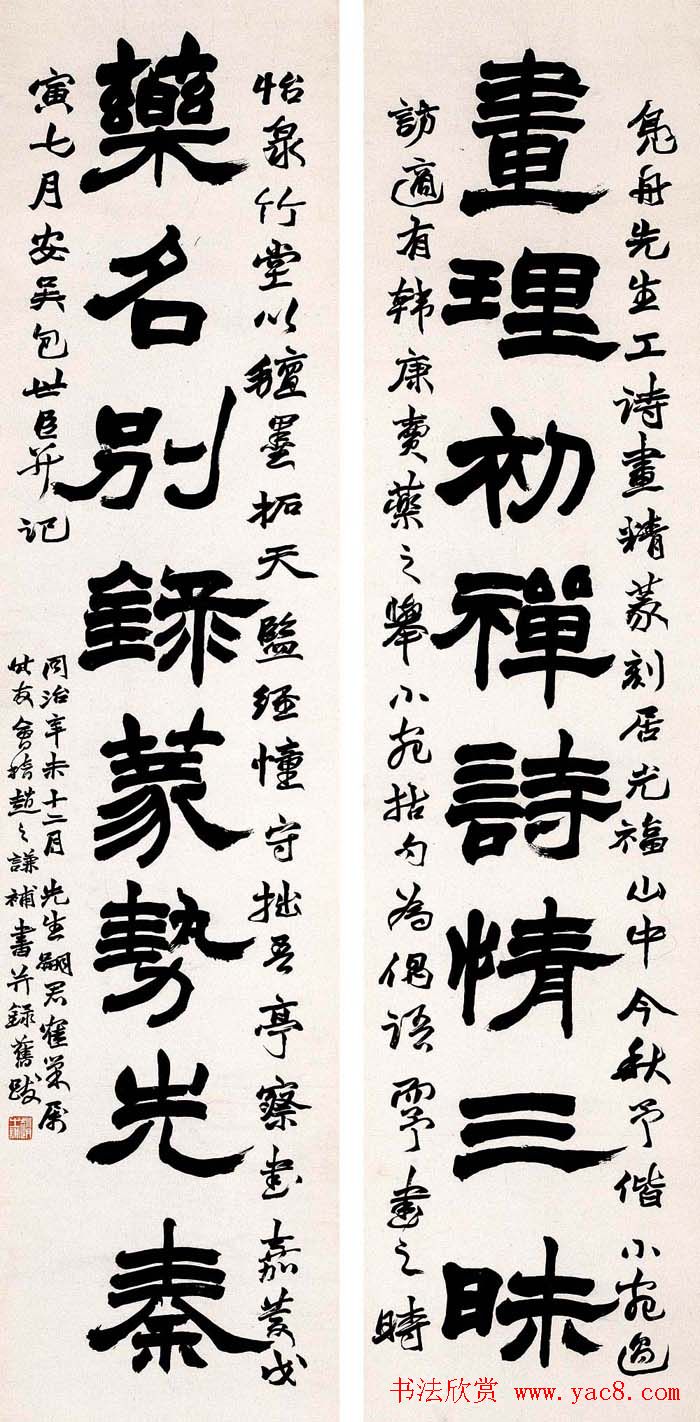 鳧舟先生工詩畫精篆刻居光福山中今秋予偕小宛過
畫理初禪詩情三昧
訪適有韓康賣藥之舉小宛拈句為偶語予書之時
怡泉竹堂以氊墨拓天監經幢守拙吾亭察書嘉慶戊
藥名別錄篆勢先秦
寅七月安吳包世臣并記
同治辛未十二月先生嗣君巢屬
友會稽趙之謙補書并錄舊跋
书法欣赏 www.yac8.com